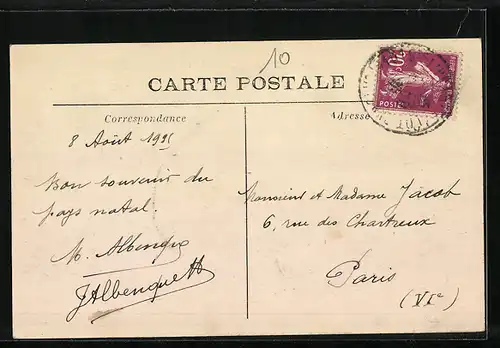 10
CARTE POSTALE
Correspondance
Adresse
8 Août
Bon souvenir du
pays natal.
M. Albenque
JAlbenque
Monsieur et Madame Jacob
6, rue des Chartreux
Paris
(VIe)
20c
POSTES